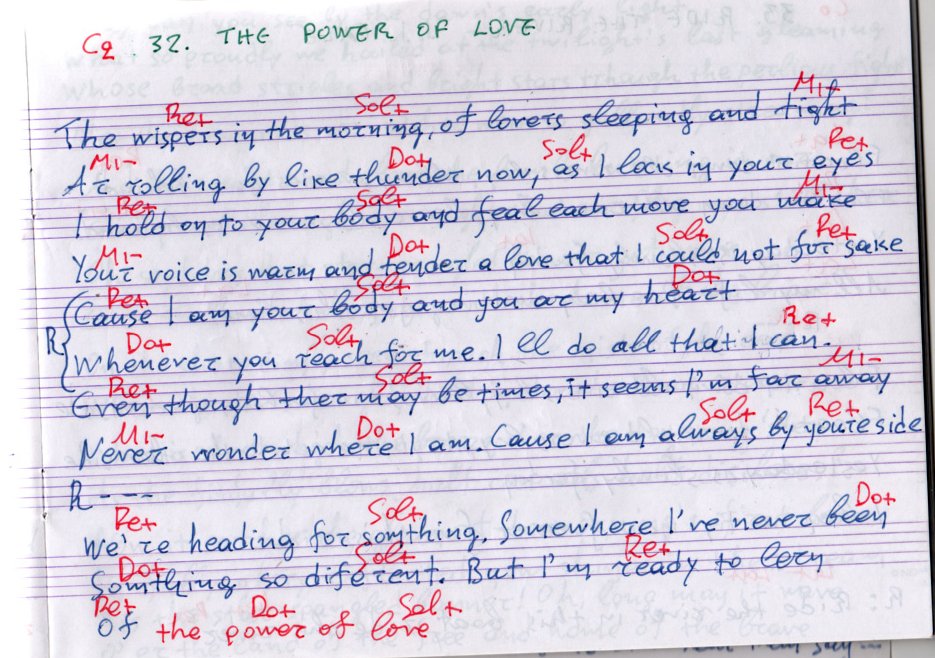 C2. 32. THE POWER OF LOVE
Re+ Sol+ Mi+
The wispers in the morning, of lovers sleeping and tight
Mi- Dot Sol+ Re+
Ar rolling by like thunder now, as I lock in your eyes
Re+ Sol+ Mi-
I hold on to your body and feal each move you make
Mi- Do+ Sol+ Re+
Your voice is warm and tender a love that I could not for sake
Re+ Sol+ Do+
Cause I am your body and you ar my heart
R{ Do+ Sol+ Re+
Whenever you reach for me. I ll do all that I can.
Re+ Sol+ Mi-
Even though ther may be times, it seems I'm far away
Mi- Do+ Sol+ Re+
Never wonder where I am. Cause I am always by youre side
R - - -
Re+ Sol+ Do+
We're heading for somthing, Somewhere I've never been
Do+ Sol+ Re+
Somthing so diferent. But I'm ready to lern
Re+ Do+ Sol+
Of the power of love